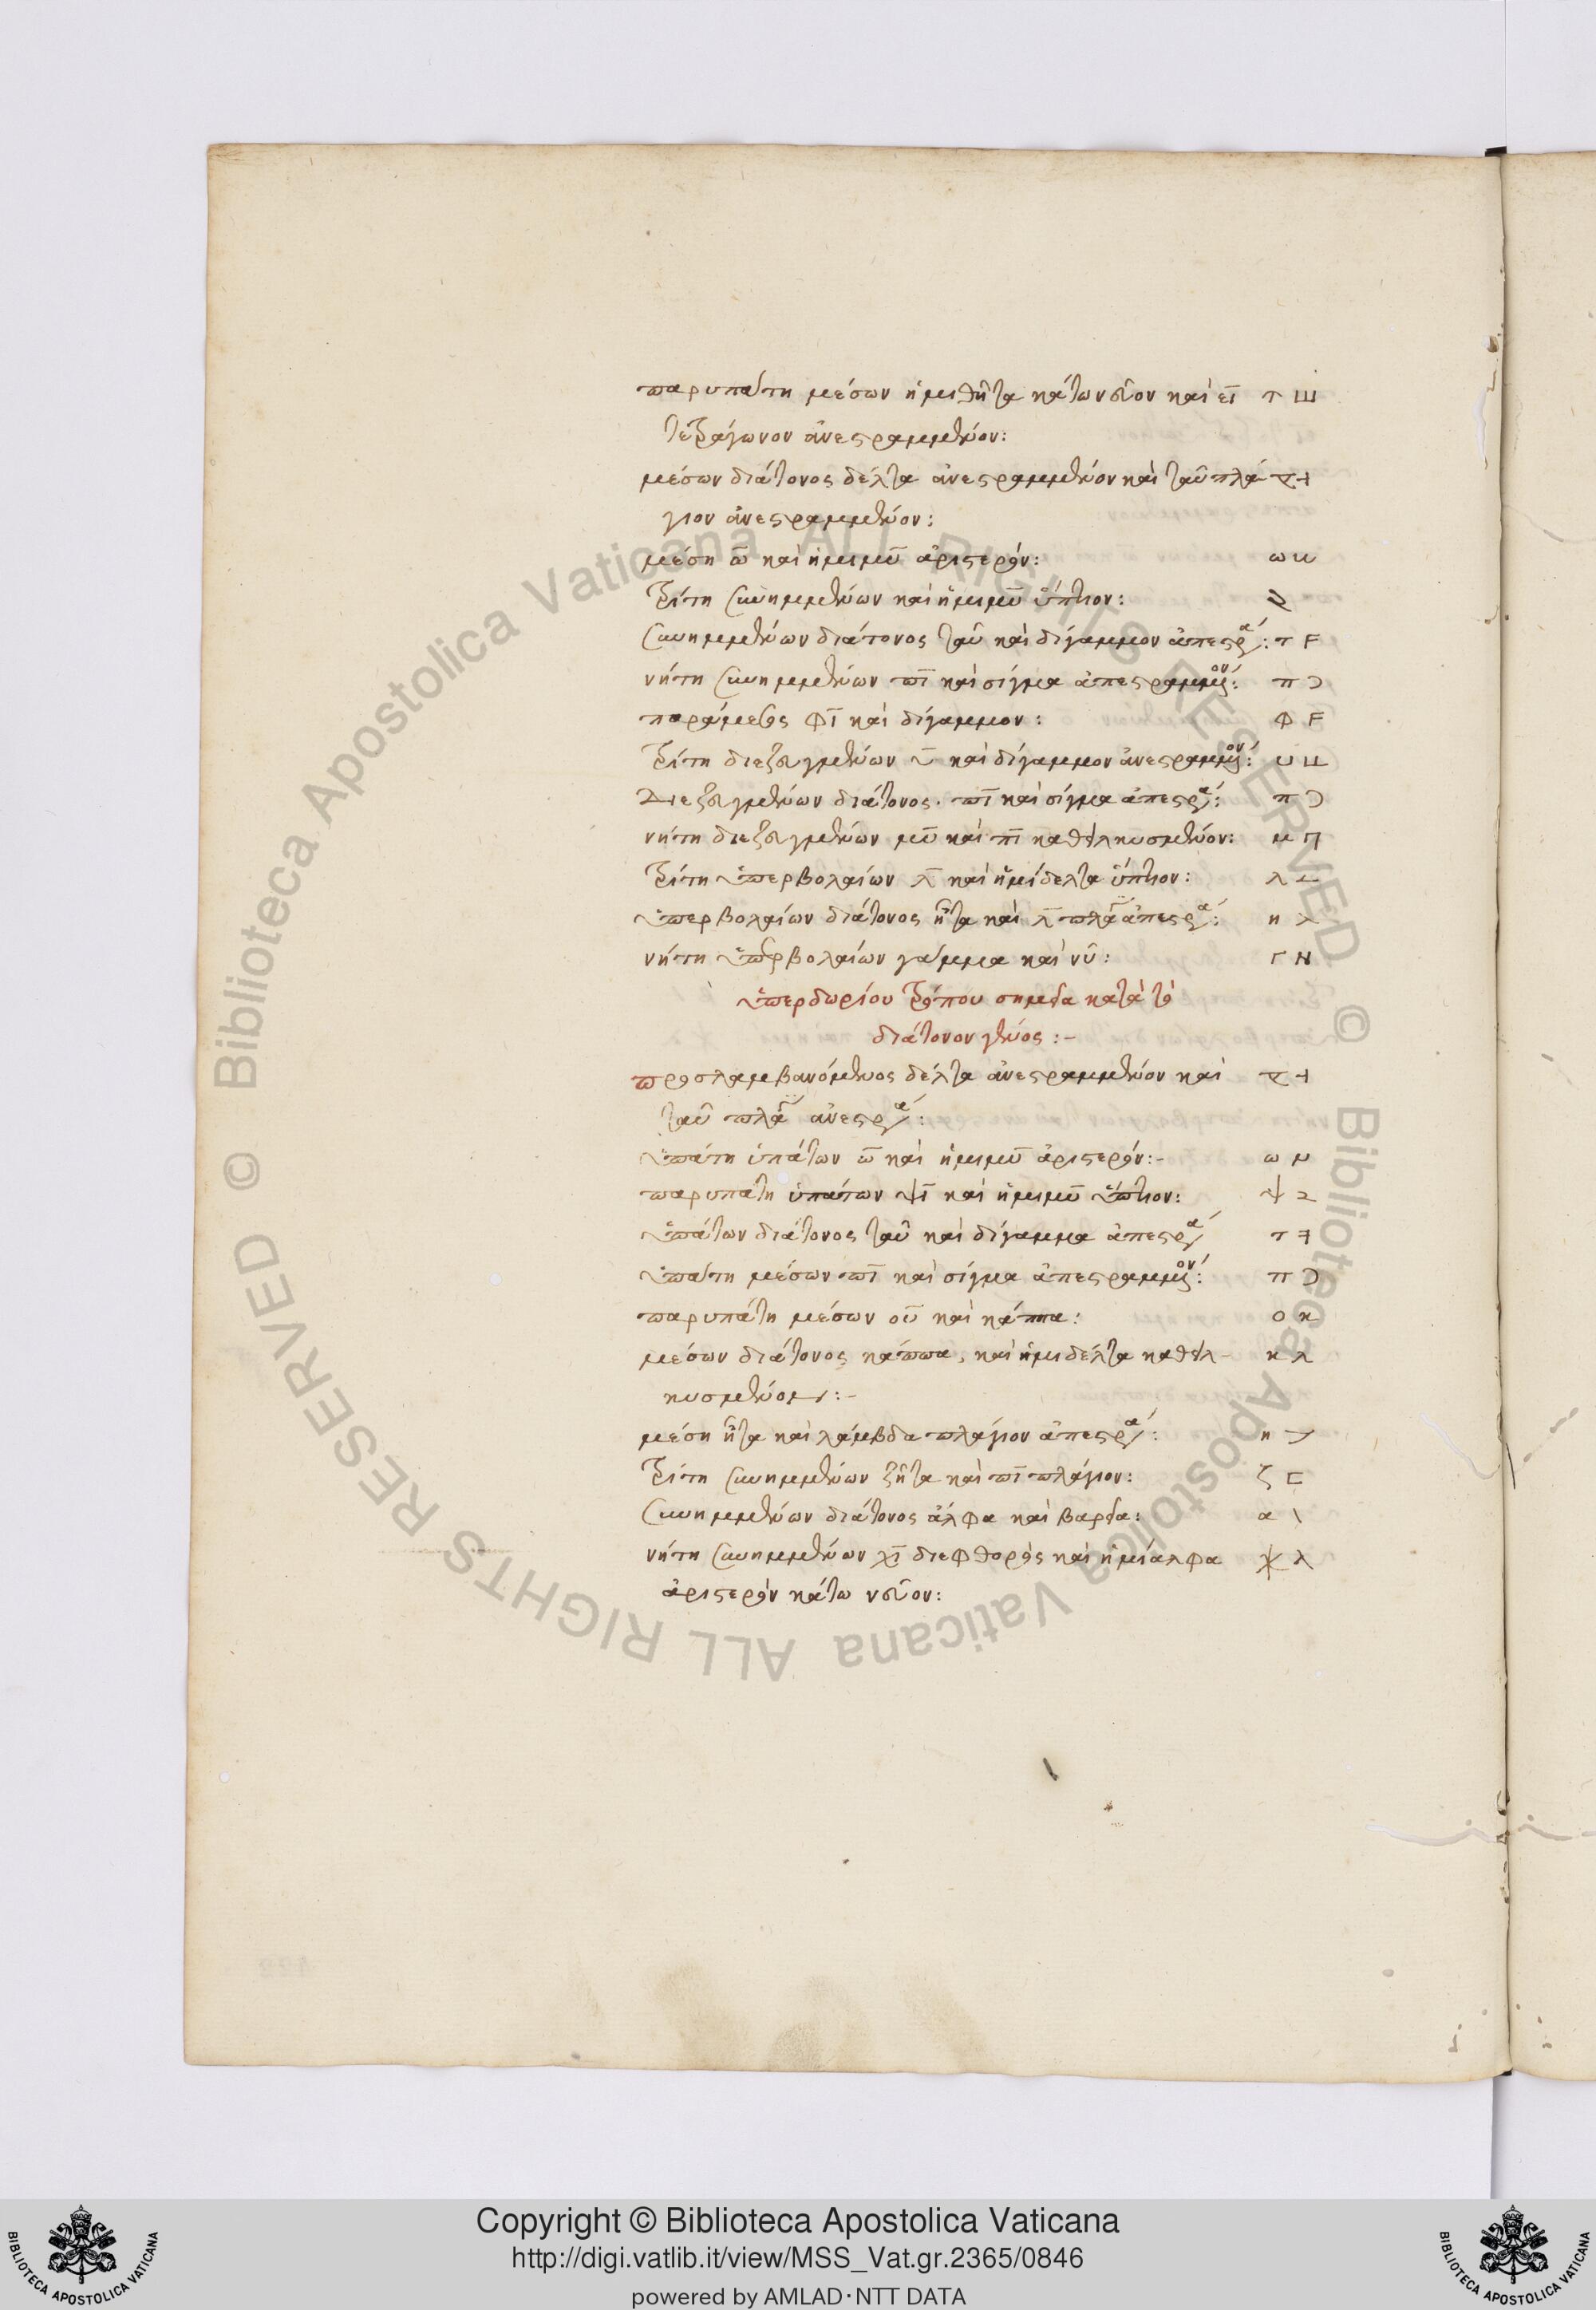 παρυπάτη μέσων ἡμιθῆτα κάτω νεῦον καὶ εῖ τ Ш
τετράγωνον ἀνεστραμμένον:
μέσων διάτονος δέλτα ἀνεστραμμένον καὶ ταῦ πλά
γιον ἀνεστραμμένον:
μέση ω̄ καὶ ἡμιμῦ ἀριστερόν: ω
τρίτη συνημμένων καὶ ἡμιμῦ ὕπτιον:
συνημμένων διάτονος ταῦ καὶ δίγαμμον ἀπεστρα: τ F
νήτη συνημμένων πῖ καὶ σίγμα ἀπεστραμμον: π Ɔ
παράμεσος φῖ καὶ δίγαμμον: φ F
τρίτη διεζευγμένων ῡ καὶ δίγαμμον ἀνεστραμμον: υ
Διεζευγμένων διάτονος. πῖ καὶ σίγμα ἀπεστρα: π Ɔ
νήτη διεζευγμένων μῦ καὶ πῖ καθειλκυσμένον: μ Π
τρίτη ὑπερβολαίων λ̄ καὶ ἡμίδελτα ὕπτιον: λ
ὑπερβολαίων διάτονος ἦτα καὶ λ̄ πλα ἀπεστρα: η
νήτη ὑπερβολαίων γάμμα καὶ νῦ: Γ Ν
ὑπερδωρίου τρόπου σημεῖα κατὰ τὸ
διάτονον γένος:-
προσλαμβανόμενος δέλτα ἀνεστραμμένον καὶ
ταῦ πλα ἀνεστρα:
ὑπάτη ὑπάτων ω̄ καὶ ἡμιμῦ ἀριστερόν:- ω
παρυπάτη ὑπάτων ψῖ καὶ ἡμιμῦ ὕπτιον: ψ
ὑπάτων διάτονος ταῦ καὶ δίγαμμα ἀπεστρα τ
ὑπάτη μέσων πῖ καὶ σίγμα ἀπεστραμμον: π Ɔ
παρυπάτη μέσων οὗ καὶ κάππα: ο κ
μέσων διάτονος κάππα, καὶ ἡμιδέλτα καθειλ- κ
κυσμένον:-
μέση ἦτα καὶ λάμβδα πλάγιον ἀπεστρα: η
τρίτη συνημμένων ζῆτα καὶ πῖ πλάγιον: ζ ⊏
συνημμένων διάτονος ἄλφα καὶ βαρεῖα: α \
νήτη συνημμένων χῖ διεφθορὸς καὶ ἡμίαλφα
ἀριστερὸν κάτω νεῦον:
Copyright © Biblioteca Apostolica Vaticana
http://digi.vatlib.it/view/MSS_Vat.gr.2365/0846
powered by AMLAD·NTT DATA